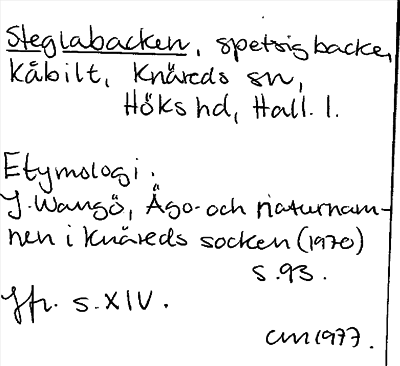 Steglabacken, spetsig backe,
Kåbilt, Knäreds sn,
Höks hd, Hall. l.
Etymologi.
J. Wangö, Ägo- och naturnam-
nen i Knäreds socken (1970)
s. 93.
Jfr. s. XIV.
cm 1977.